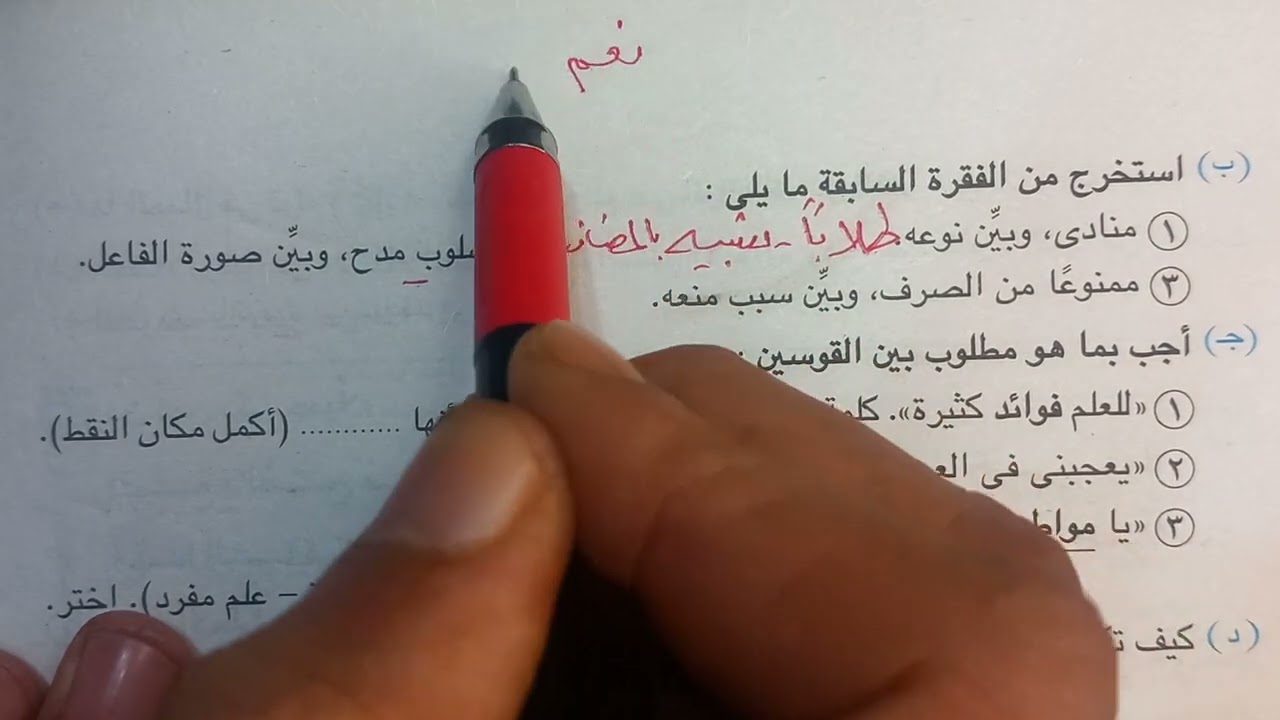 نعم
(ب) استخرج من الفقرة السابقة ما يلى :
١ منادى، وبيِّن نوعه طلابًا - شبيه بالمضاف
مدح، وبيِّن صورة الفاعل.
٣ ممنوعًا من الصرف، وبيِّن سبب منعه.
(جـ) أجب بما هو مطلوب بين القوسين :
١ «للعلم فوائد كثيرة». ............ (أكمل مكان النقط).
٢ «يعجبنى فى
٣ «يا
– علم مفرد). اختر.
(د) كيف